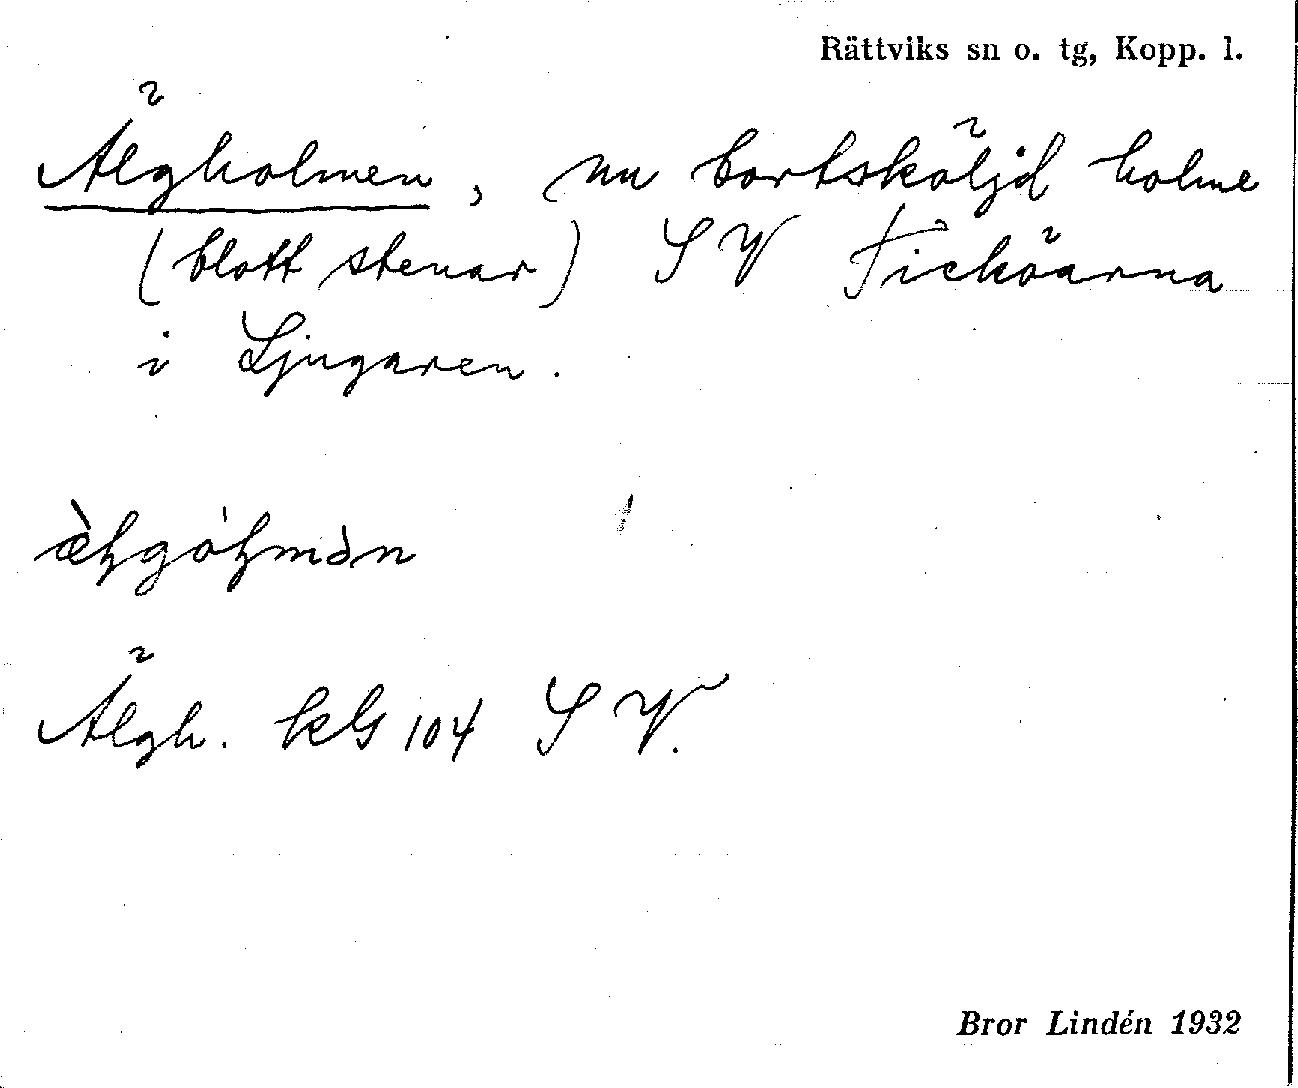 Rättviks sn o. tg, Kopp. l.
Älgholmen, nu bortsköljd holme
(blott stenar) SV Ficköarna
i Ljugaren.
Älgh. kbl 104 SV.
Bror Lindén 1932